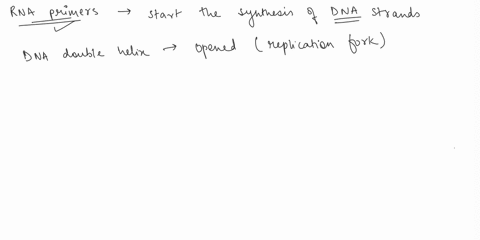 RNA primers → start the synthesis of DNA strands
DNA double helix → opened (replication fork)